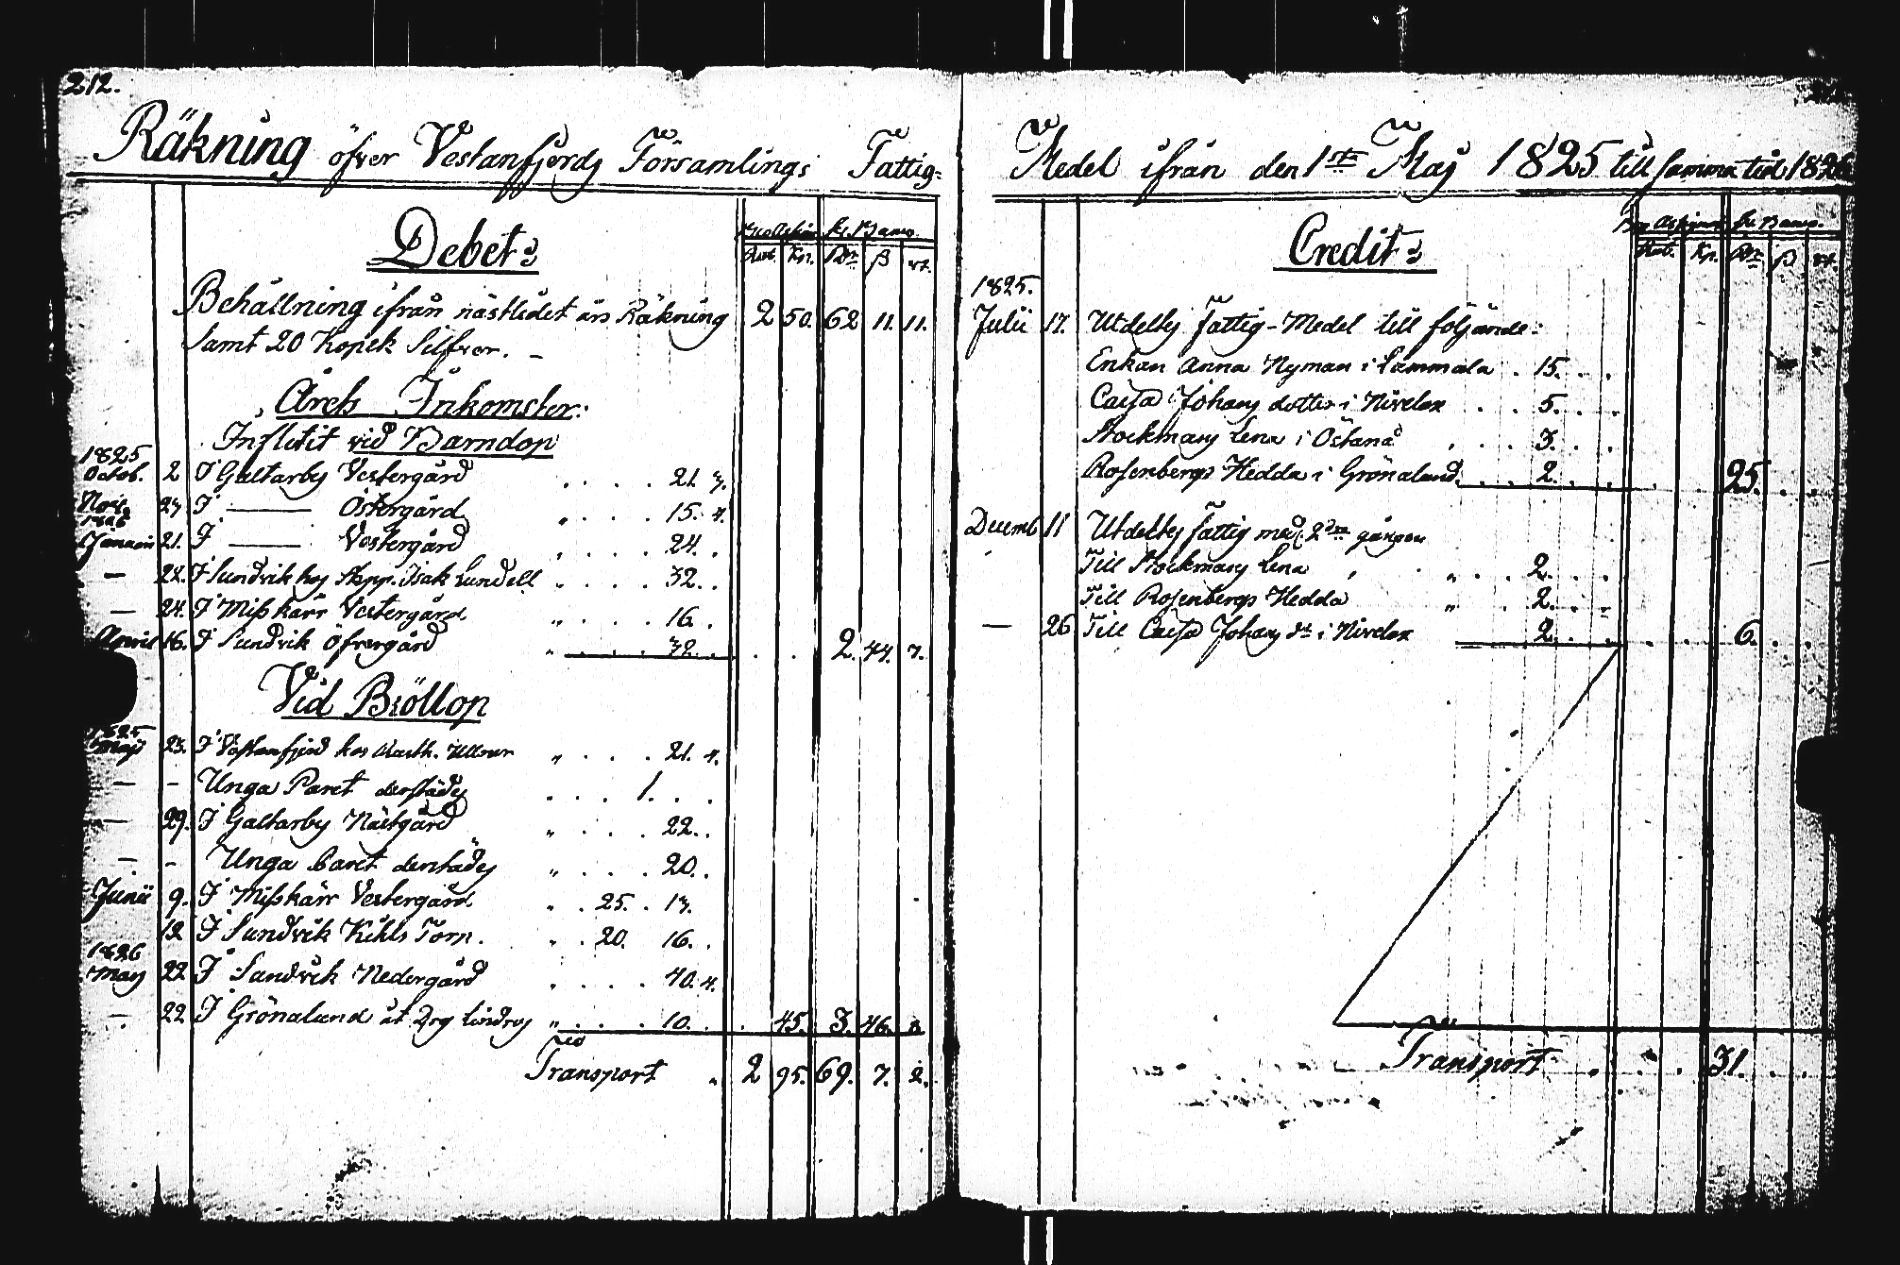 212.
Räkning öfver Vestanfjerds Församlings Fattig-
Debet:
Rub. Kop. Rdr ß rst.
Behållning ifrån nästledet års Räkning 2 50. 62 11. 11.
Samt 20 Kopek Silfver. –
Årets Inkomster:
Influtit vid Barndop
1825
Octob. 2 I Galtarby Vestergård . . . . 21. 7.
Nov. 27 I —— Östergård . . . . 15. 4.
1826
Januarii 21. I —— Vestergård . . . . 24. .
— 22. I Sundvik hos Isak Lundell . . . . 32. .
— 24. I Misskärr Vestergård . . . . 16. .
Aprill 16. I Sundvik Öfvergård . . . . 32. . . . 2. 44. 7.
Vid Bröllop
1825
Maji 23. I Vestanfjerd hos . . . . 21. 4.
— – Unga Paret derstädes . . . 1. . .
— 29. I Galtarby Nästgård . . . . 22. .
— – Unga Paret derstädes . . . . 20. .
Junii 9. I Misskärr Vestergård . . 25. . 17.
12 I Sundvik Torp. . . 20. 16. .
1826
Maij 22 I Sundvik Nedergård . . . . 40. 4.
— 22 I Grönalund åt . . . . 10. . . 45. 3. 46.
Transport 2 95. 69. 7. 2.
Medel ifrån den 1sta Maj 1825 till samma tid 1826
Credit:
Rub. Kp. Rdr ß rst.
1825.
Julii 17. Utdeltes Fattig-Medel till följande:
Enkan Anna Nyman i Lammala . 15. . .
Caisa Johans dotter i Nivelax . . 5. . .
Stockmans Lena i Östanå . . . 3. . .
Rosenbergs Hedda i Grönalund. . . 2. . . . . 25. . .
Decemb 11 Utdeltes Fattig med. 2dra gången
Till Stockmans Lena . . 2. . .
Till Rosenbergs Hedda . 2. . .
— 26 Till Caisa Johans dr i Nivelax 2. . . . . 6. . .
Transport . . . 31. . .